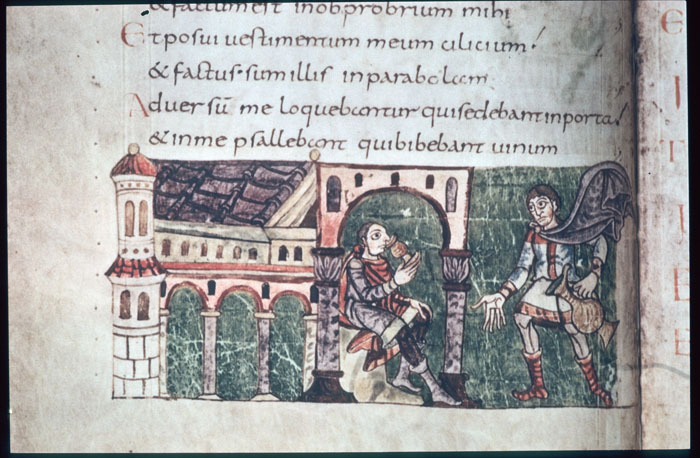 & factum est inobprobrium mihi
Et posui uestimentum meum cilicium!
& factus sum illis inparabolam
Aduersū me loquebantur qui sedebant inporta!
& inme psallebant qui bibebant uinum
E
I
E